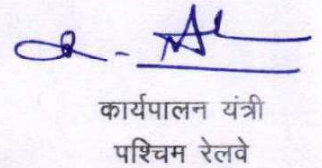 कार्यपालन यंत्री
पश्चिम रेलवे